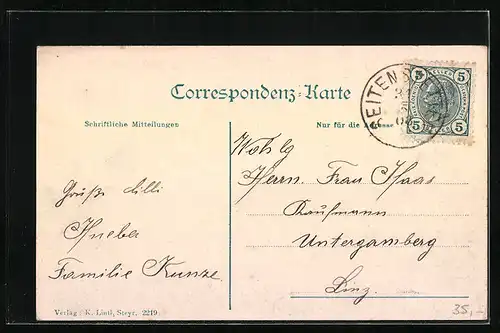 Correspondenz-Karte
Schriftliche Mitteilungen
Nur für die Adresse
5 5
5 5
Wohlg
Herrn Frau Haas
Kaufmann
Untergamberg
Linz.
Familie Kunze
Verlag K. Lintl, Steyr. 2219
35,-